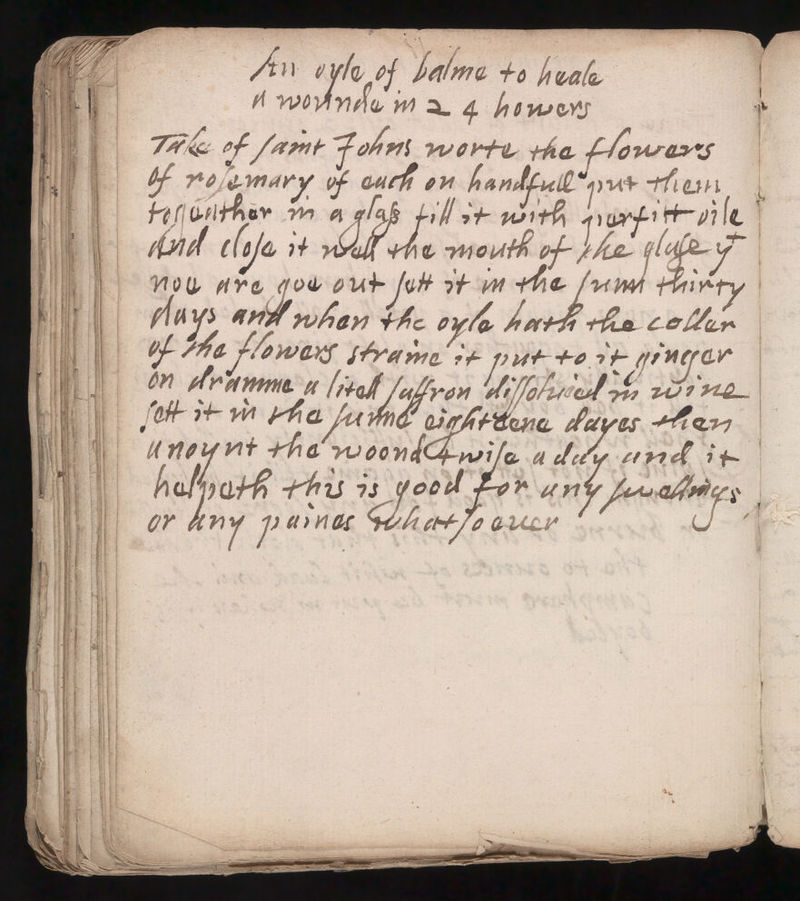 An oyle of balme to heale
a wounde in 24 howers
Take of saint Johns worte the flowers
of rosemary of each on handfull put them
togeather in a glass fill it with perfitt oile
and close it well the mouth of the glase yt
noe are goe out sett it in the sunn thirty
days and when the oyle hath the coller
of the flowers straine it put to it ginger
on dramme a litell saffron dissolued in wine
sett it in the sunne eighteene dayes then
anoynt the woond twise a day and it
helpeth this is good for any swellings
or any paines whatsoeuer